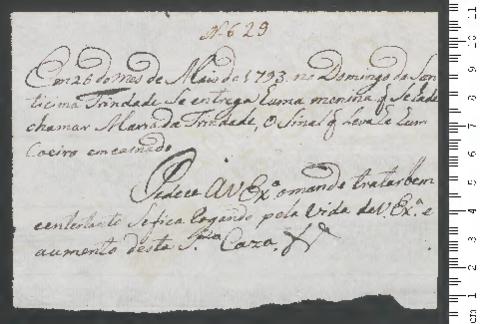 N 629
Em 26 do mes de Maio de 1793. no Domingo da San
ticima Trindade se entrega huma menina q̃ se hade
chamar Maria da Trindade, o sinal q̃ leva he hum
Coeiro emcarnado
Pedece a V Ex.ª o mande tratar bem
e entertanto se fica Rogando pela vida de V. Ex.ª e
aumento desta S.ta Caza.
cm 1 2 3 4 5 6 7 8 9 10 11